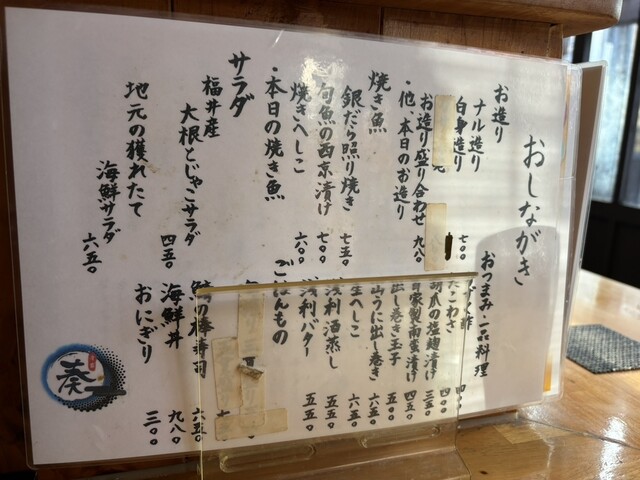 おしながき
お造り
ナル造り
白身造り 七〇〇
お造り盛り合わせ 九八〇
・他、本日のお造り
焼き魚
銀だら照り焼き 七五〇
旬魚の西京漬け 七〇〇
焼きへしこ 六〇〇
・本日の焼き魚
サラダ
福井産
大根とじゃこサラダ 四五〇
地元の獲れたて
海鮮サラダ 六五〇
おつまみ・一品料理
たこわさ 四〇〇
胡瓜の塩麹漬け 三五〇
自家製南蛮漬け 四五〇
出し巻き玉子 五〇〇
山うに出し巻き 六五〇
生へしこ 六五〇
浅利酒蒸し 五五〇
浅利バター 五五〇
ごはんもの
鯖の棒寿司 六五〇
海鮮丼 九八〇
おにぎり 三〇〇
奏